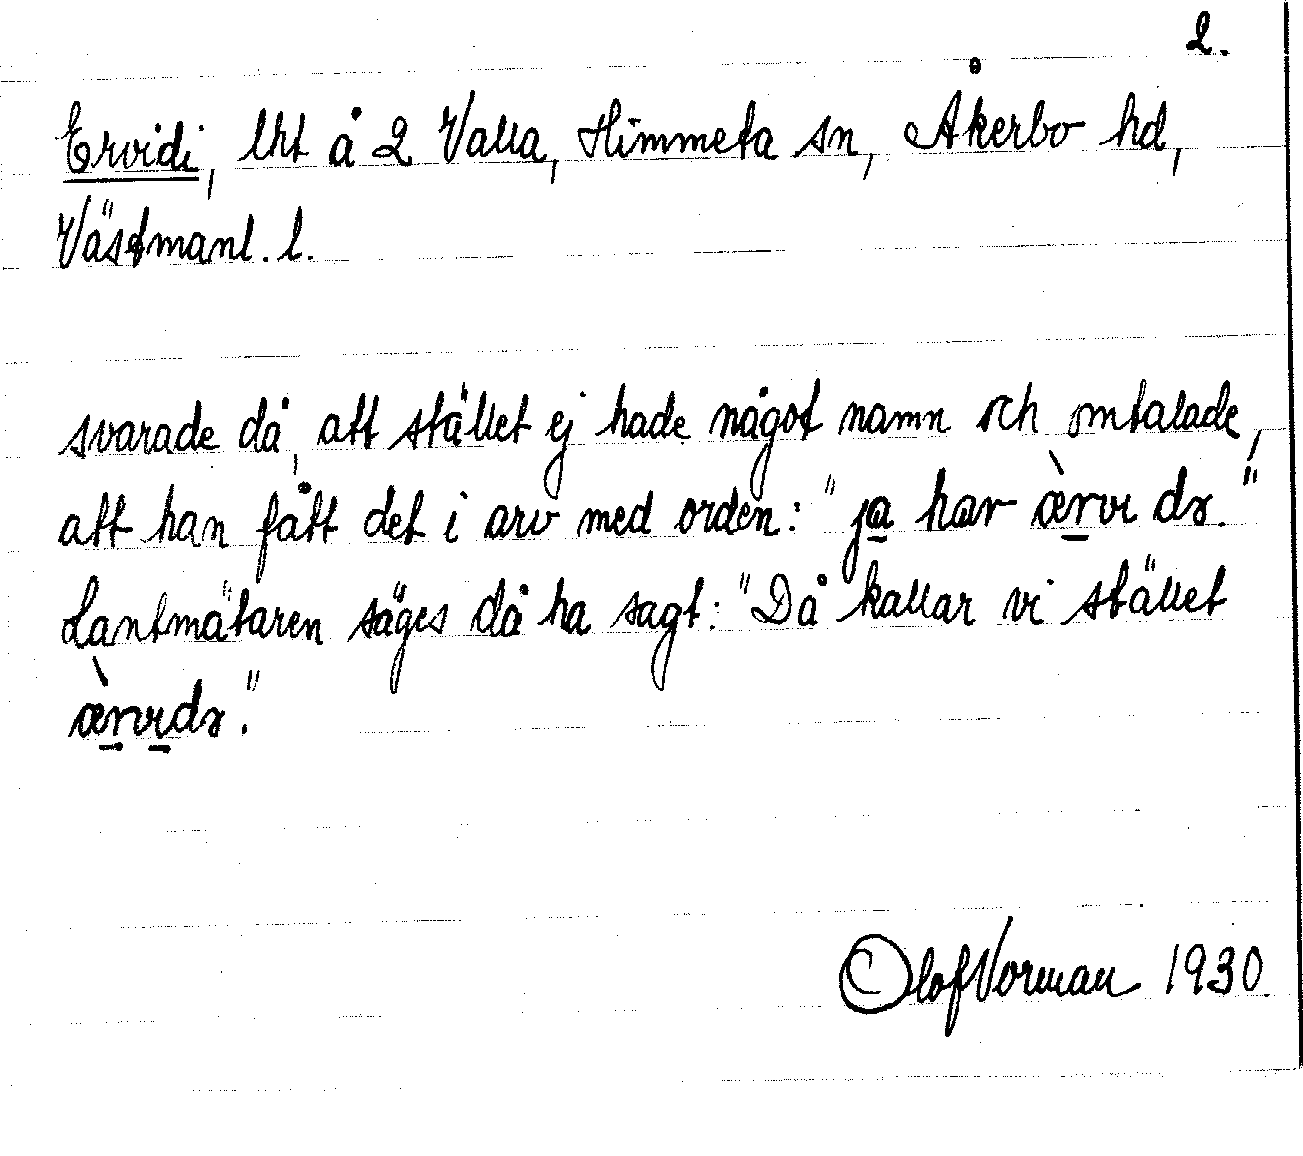 2.
Ervidi, lht å 2 Valla, Himmeta sn, Åkerbo hd,
Västmanl. l.
svarade då, att stället ej hade något namn och omtalade,
att han fått det i arv med orden: "ja har ærvi də."
Lantmätaren säges då ha sagt: "Då kallar vi stället
ærvidə."
Olof Norman 1930